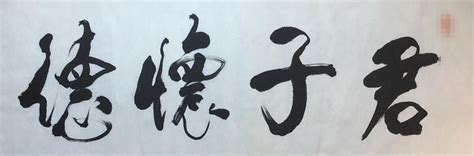 君子懷德